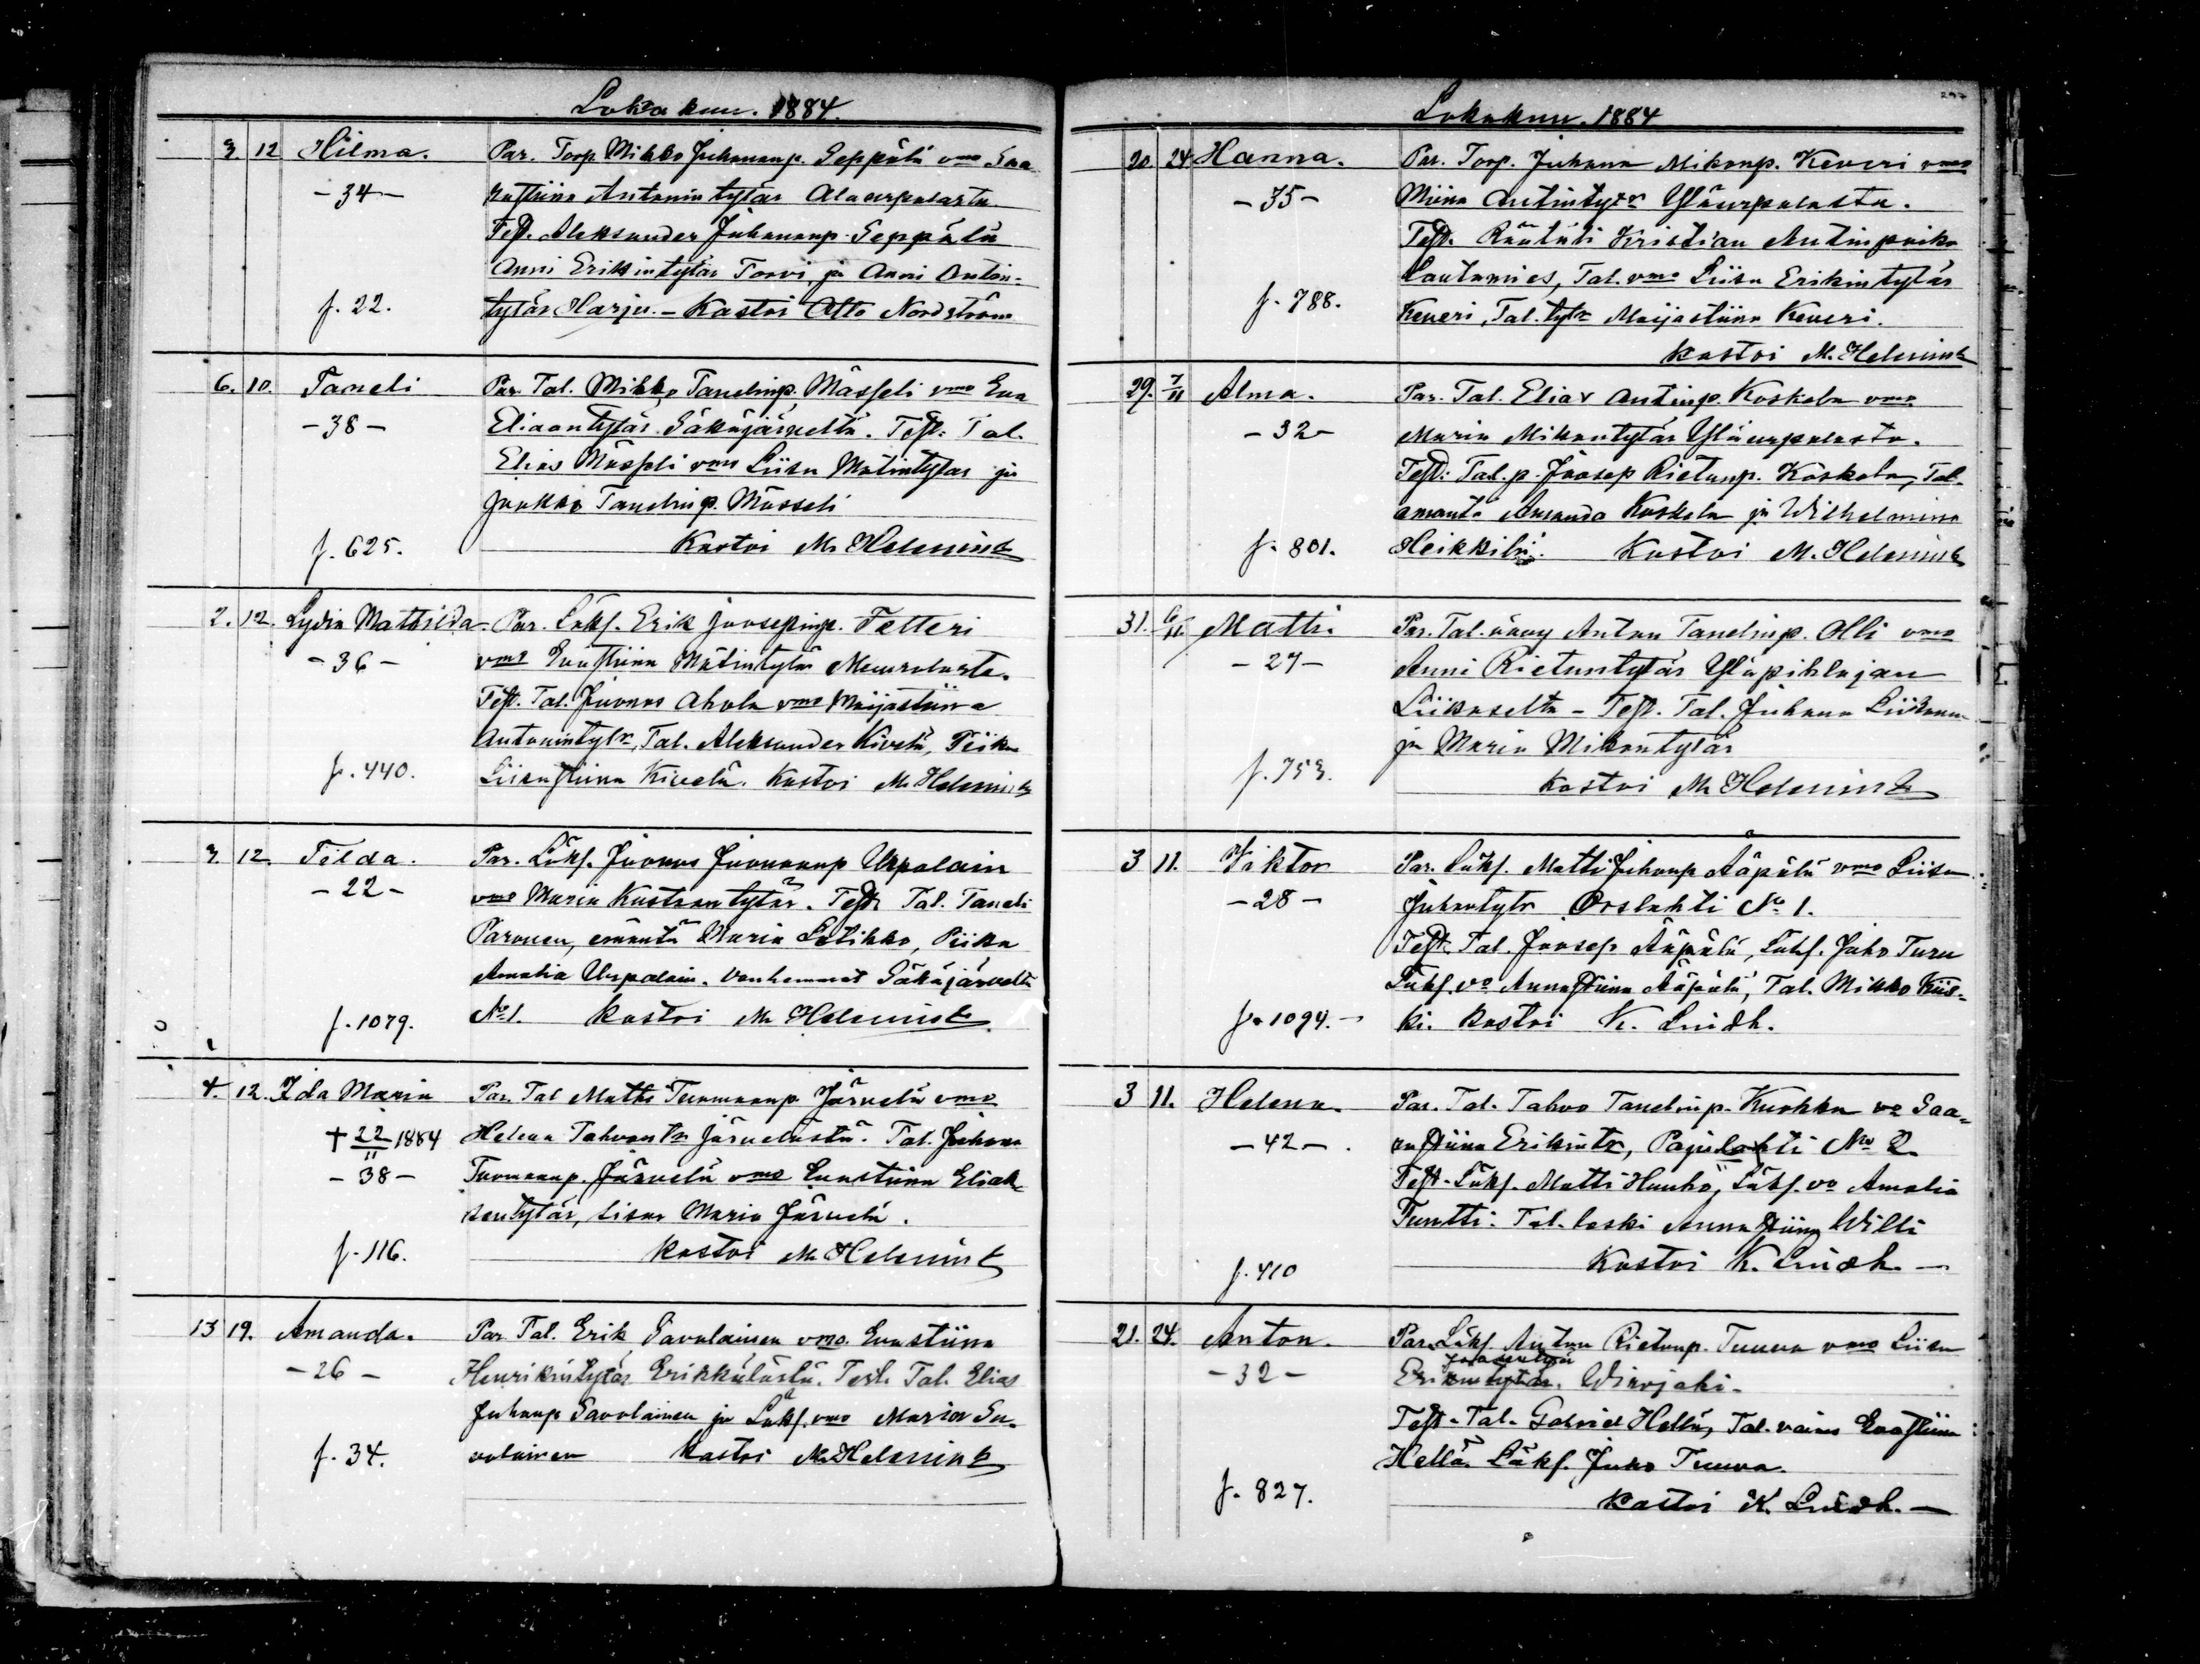 Lokakuu. 1884.
3 12 Hilma. Par. Torp. Mikko Juhananp. Seppälä vmo Saa
-34- rastiina Antonintytär Alaurpalasta
Test. Aleksander Juhananp. Seppälä
Anni Erikintytär Torvi, ja Anni Anton-
f. 22. tytär Harju. - Kastoi Otto Nordström
6. 10. Taneli Par. Tal. Mikko Tanelinp. Mässeli vmo Eva
-38- Eliaantytär Säkäjärveltä. Test: Tal.
Elias Mässeli vmo Liisa Matintytär ja
Jaakko Tanelinp. Mässeli
f. 625. Kastoi M. Helenius
2. 12. Lydia Mathilda. Par. Lökf. Erik Joosepinp. Fetteri
-36- vmo Matintytär
Test. Tal. Joonas Ahola vmo Maijastiina
Antonintytr, Tal. Aleksander Kivelä, Piika
f. 440. Liisastiina Kivelä. Kastoi M. Helenius
3. 12. Tilda. Par. Lökf. Joonas Joonaanp Urpalain
-22- vmo Maria Kustaantytär. Test. Tal. Taneli
Paronen, emäntä Maria Lotikko, Piika
Amalia Urpalain. Vanhemmat Säkäjärveltä
f. 1079. No 1. Kastoi M. Helenius
4. 12. Ida Maria Par. Tal Matti Tuomaanp Järvelä vmo
† 22/11 1884 Helena Tahvontr Järvelästä. Tal. Juhana
-38- Tuomaanp. Järvelä vmo Evastiina Eliak-
sentytär, sisar Maria Järvelä.
f. 116. Kastoi M. Helenius
13 19. Amanda. Par. Tal. Erik Savolainen vmo. Evastiina
-26- Henrikintytär Erikkälästä. Test. Tal. Elias
Juhanp Savolainen ja Lökf. vmo Maria Sa-
f. 34. volainen Kastoi M. Helenius
Lokakuu. 1884
20. 24 Hanna. Par. Torp. Juhana Mikonp. Keveri vmo
-35- Miina Antintytr Yläurpalasta.
Test. Räätäli Kristian Antinpoika
Lautamies, Tal. vmo Liisa Erikintytär
f. 788. Keveri, Tal. tytr Maijastiina Keveri.
Kastoi M. Helenius
29. 7/11 Alma. Par. Tal. Elias Antinp. Koskela vmo
-32- Maria Mikontytär Yläurpalasta.
Test: Tal. p. Joosep Rietunp. Koskela, Tal.
emäntä Amanda Koskela ja Wilhelmina
f. 801. Heikkilä. Kastoi M. Helenius
31. 6/11. Matti. Par. Tal. vävy Anton Tanelinp. Olli vmo
-27- Anni Rietuntytär Yläpihlajan
Liikaselta - Test. Tal. Juhana Liikanen
ja Maria Mikontytär
f. 753. Kastoi M. Helenius
3 11. Viktor Par. Lökf. Matti Juhanp Ääpälä vmo Liisa
-28- Juhantytr Orslahti No 1.
Test. Tal. Joosep Ääpälä, Lökf. Juho Turu
Lökf. vo Annastiina Ääpälä, Tal. Mikko Kiis-
f. 1094. - ki. Kastoi K. Lindh.
3 11. Helena. Par. Tal. Tahvo Tanelinp. Kuokka vo Saa-
-42- . rastiina Erikintr, Pajulahti No 2.
Test. Lökf. Matti Hanhö, Lökf. vo Amalia
Funtti. Tal. leski Annastiina Willi
f. 410 Kastoi K. Lindh. -
21. 24. Anton. Par. Lökf. Anton Rietunp. Tuuva vmo Liisa
-32- Erikintytär. Wirojoki.
Test. Tal. Gabriel Hellä, Tal. vaimo Evastiina
Hellä. Lökf. Juho Tuuva.
f. 827. Kastoi K. Lindh. -